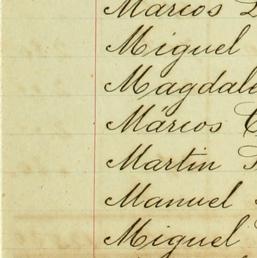 Marcos
Miguel
Magdale
Márcos
Martin
Manuel
Miguel